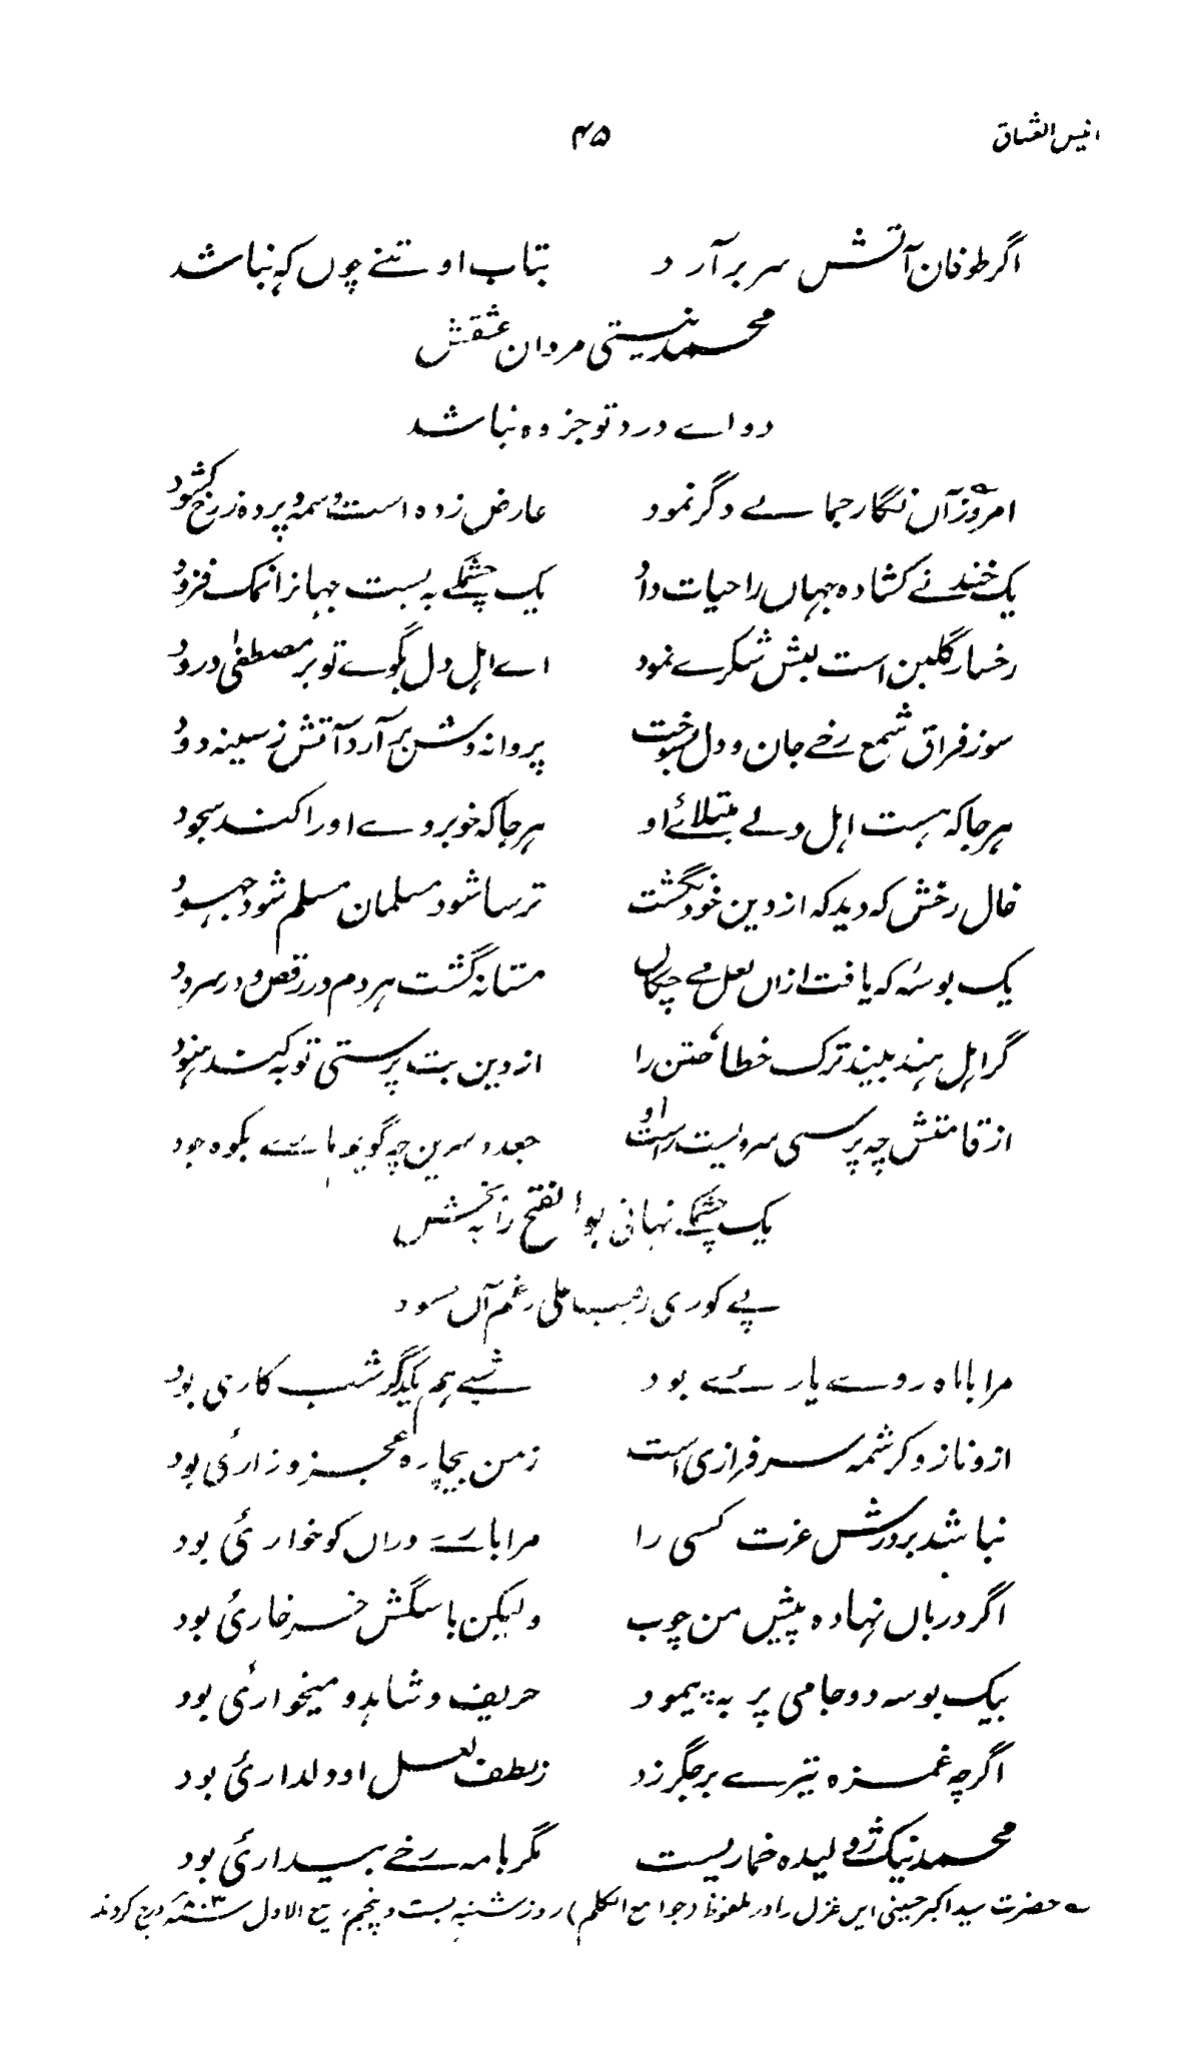 انیس العشاق ۴۵
اگر طوفان آتش سر بر آرد بتاب او تنے چوں کہ نباشد
محمد نیستی مردان عشقش
دواے درد تو جز وہ نباشد
امروز آں نگار جمالے دگر نمود عارض زدہ است وسمہ و پردہ ز رخ کشود
یک خندۂ کشادہ جہاں را حیات داد یک چشمکے بہ بست جہانرا نمک فزود
رخسار گلبن است لبش شکرے نمود اے اہل دل بگوے تو بر مصطفیٰ درود
سوز فراق شمع رخے جان و دل بسوخت پروانہ وش بر آرد آتش ز سینہ دود
ہر جا کہ ہست اہل دلے مبتلائے او ہر جا کہ خوبروے او را کند سجود
خال رخش کہ دید کہ از دین خود نگشت ترسا شود مسلمان مسلم شود جہود
یک بوسۂ کہ یافت ازاں لعل مے چکاں مستانہ گشت ہر دم در رقص و در سرود
گر اہل ہند بیند ترک خطا ختن را از دین بت پرستی توبہ کند ہنود
از قامتش چہ پرسی سرویست راست او جعد و سرین چہ گویم بکوہ جود
یک چشمک نہانی بوالفتح را بہ بخش
پے کوری رقیب علی رغم آں
مرا با ماہ روے یارئے بود شبے ہم یکدگر شب کاری بود
ازو ناز و کرشمہ سرفرازی است ز من بیچارہ عجز و زاریٔ بود
نباشد بر درش عزت کسی را مرا بارے دراں کو خواریٔ بود
اگر درباں نہادہ پیش من چوب ولیکن با سگش خرخاریٔ بود
بیک بوسہ دو جامی پر بہ پیمود حریف و شاہد و میخواریٔ بود
اگرچہ غمزہ تیرے بر جگر زد ز لطف لعل او دلداریٔ بود
محمد نیک ژولیدہ خماریست مگر با مہ رخے بیداریٔ بود
؎ حضرت سید اکبر حسینی ایں غزل را در ملفوظ (جوامع الکلم) روز شنبہ بست و پنجم ربیع الاول ۸۰۳ھ درج کردند